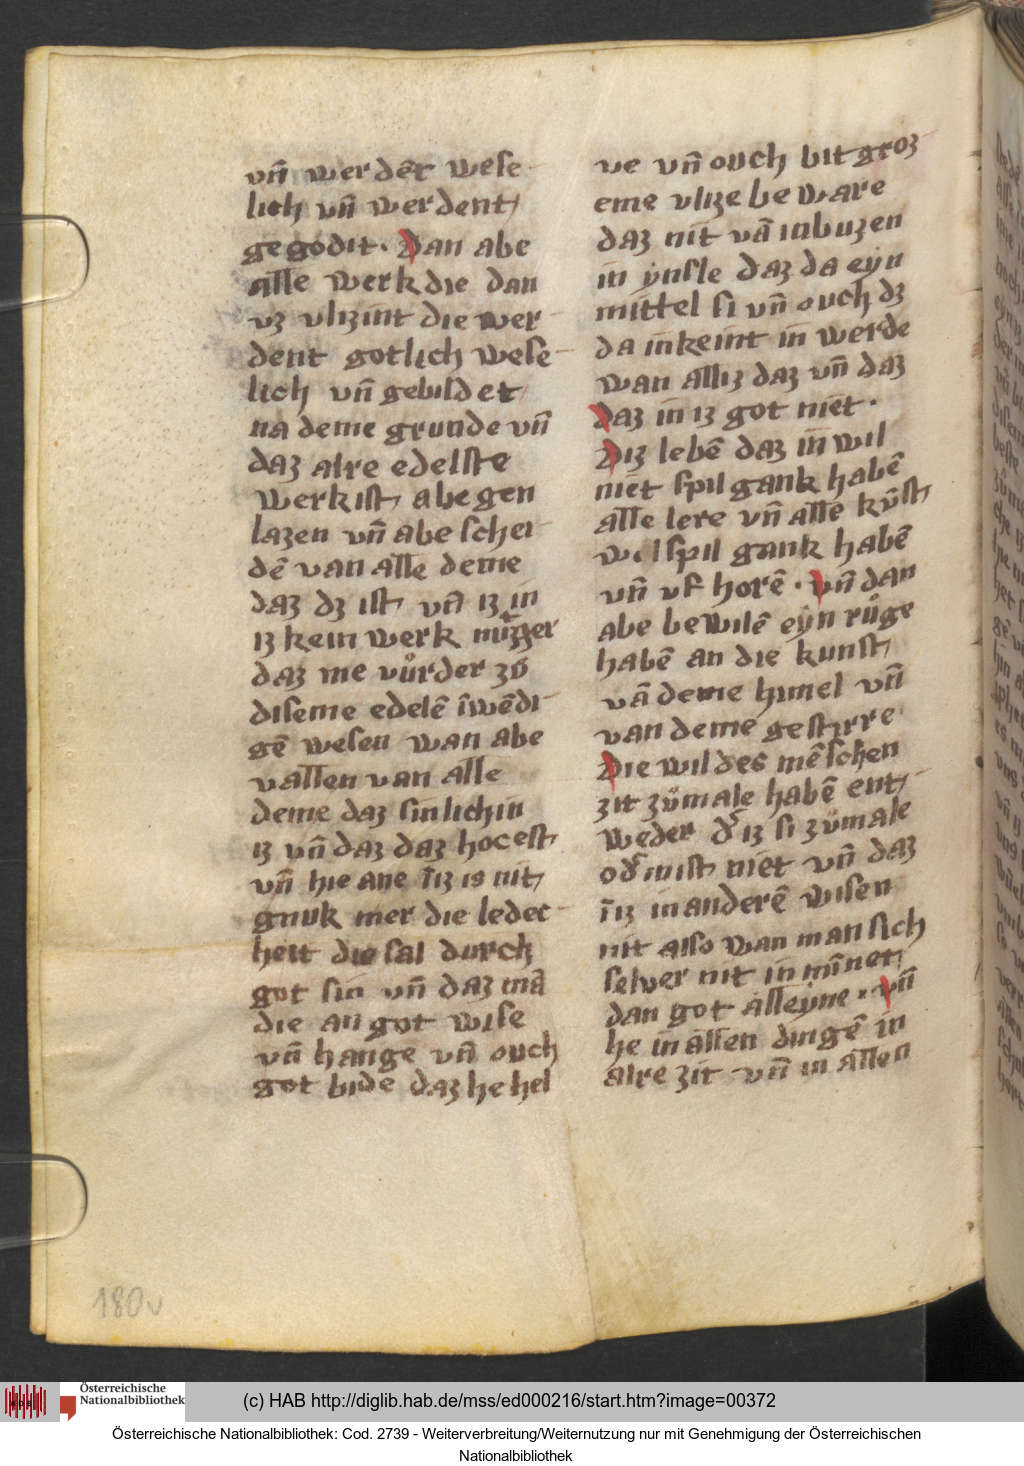 vñ werdēt wese
lich vñ werdent
gegodit. Dan abe
alle werk die dan
vz vlizint die wer
dent gotlich wese
lich vñ gebildet
na deme grunde vñ
daz alre edelste
werk ist abe gen
lazen vñ abe schei
dē van alle deme
daz dz ist vñ iz in
iz kein werk nützer
daz me vůrder zů
diseme edelē īwēdi
gē wesen wan abe
vallen van alle
deme daz sinlich in
iz vñ daz daz hoeest
vñ hie ane īz is nit
gnuk mer die ledec
heit die sal durch
got sin vñ daz mā
die an got wise
vñ hange vñ ouch
got bide daz he hel
ve vñ ouch bit groz
eme vlize be ware
daz nit vā inbuzen
in ẏnsle daz da eẏn
mittel si vñ ouch dz
da inkeint in werde
wan alliz daz vñ daz
daz in iz got niet.
Diz lebē daz in wil
niet spil gank habē
alle lere vñ alle kūst
wil spil gank habē
vñ vf horē. vñ dan
abe bewilē eẏn růge
habē an die kunst
vā deme himel vñ
van deme gestirre
Die wil des mēschen
zit zůmale habē ent
weder d' iz si zůmale
od' inist niet vñ daz
īz in anderē wisen
nit also wan man sich
selver nit in mīnet
dan got alleẏne. vñ
he in allen dingē in
alre zit vñ in allen
180v
HAB
Österreichische
Nationalbibliothek
(c) HAB http://diglib.hab.de/mss/ed000216/start.htm?image=00372
Österreichische Nationalbibliothek: Cod. 2739 - Weiterverbreitung/Weiternutzung nur mit Genehmigung der Österreichischen
Nationalbibliothek